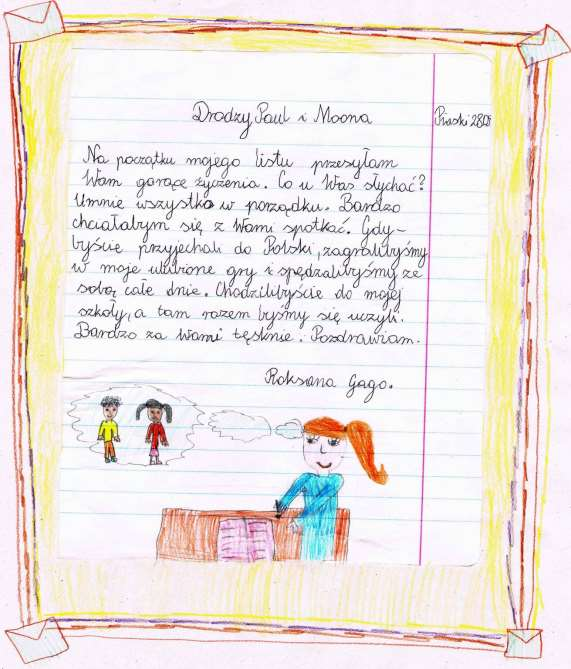 Drodzy Paul i Moona
Piaski 28.05
Na początku mojego listu przesyłam
Wam gorące życzenia. Co u Was słychać?
Umnie wszystko w porządku. Bardzo
chciałabym się z Wami spotkać. Gdy-
byście przyjechali do Polski, zagralibyśmy
w moje ulubione gry i spędzalibyśmy ze
sobą całe dnie. Chodzilibyście do mojej
szkoły, a tam razem byśmy się uczyli.
Bardzo za Wami tęsknie. Pozdrawiam.
Roksana Gago.